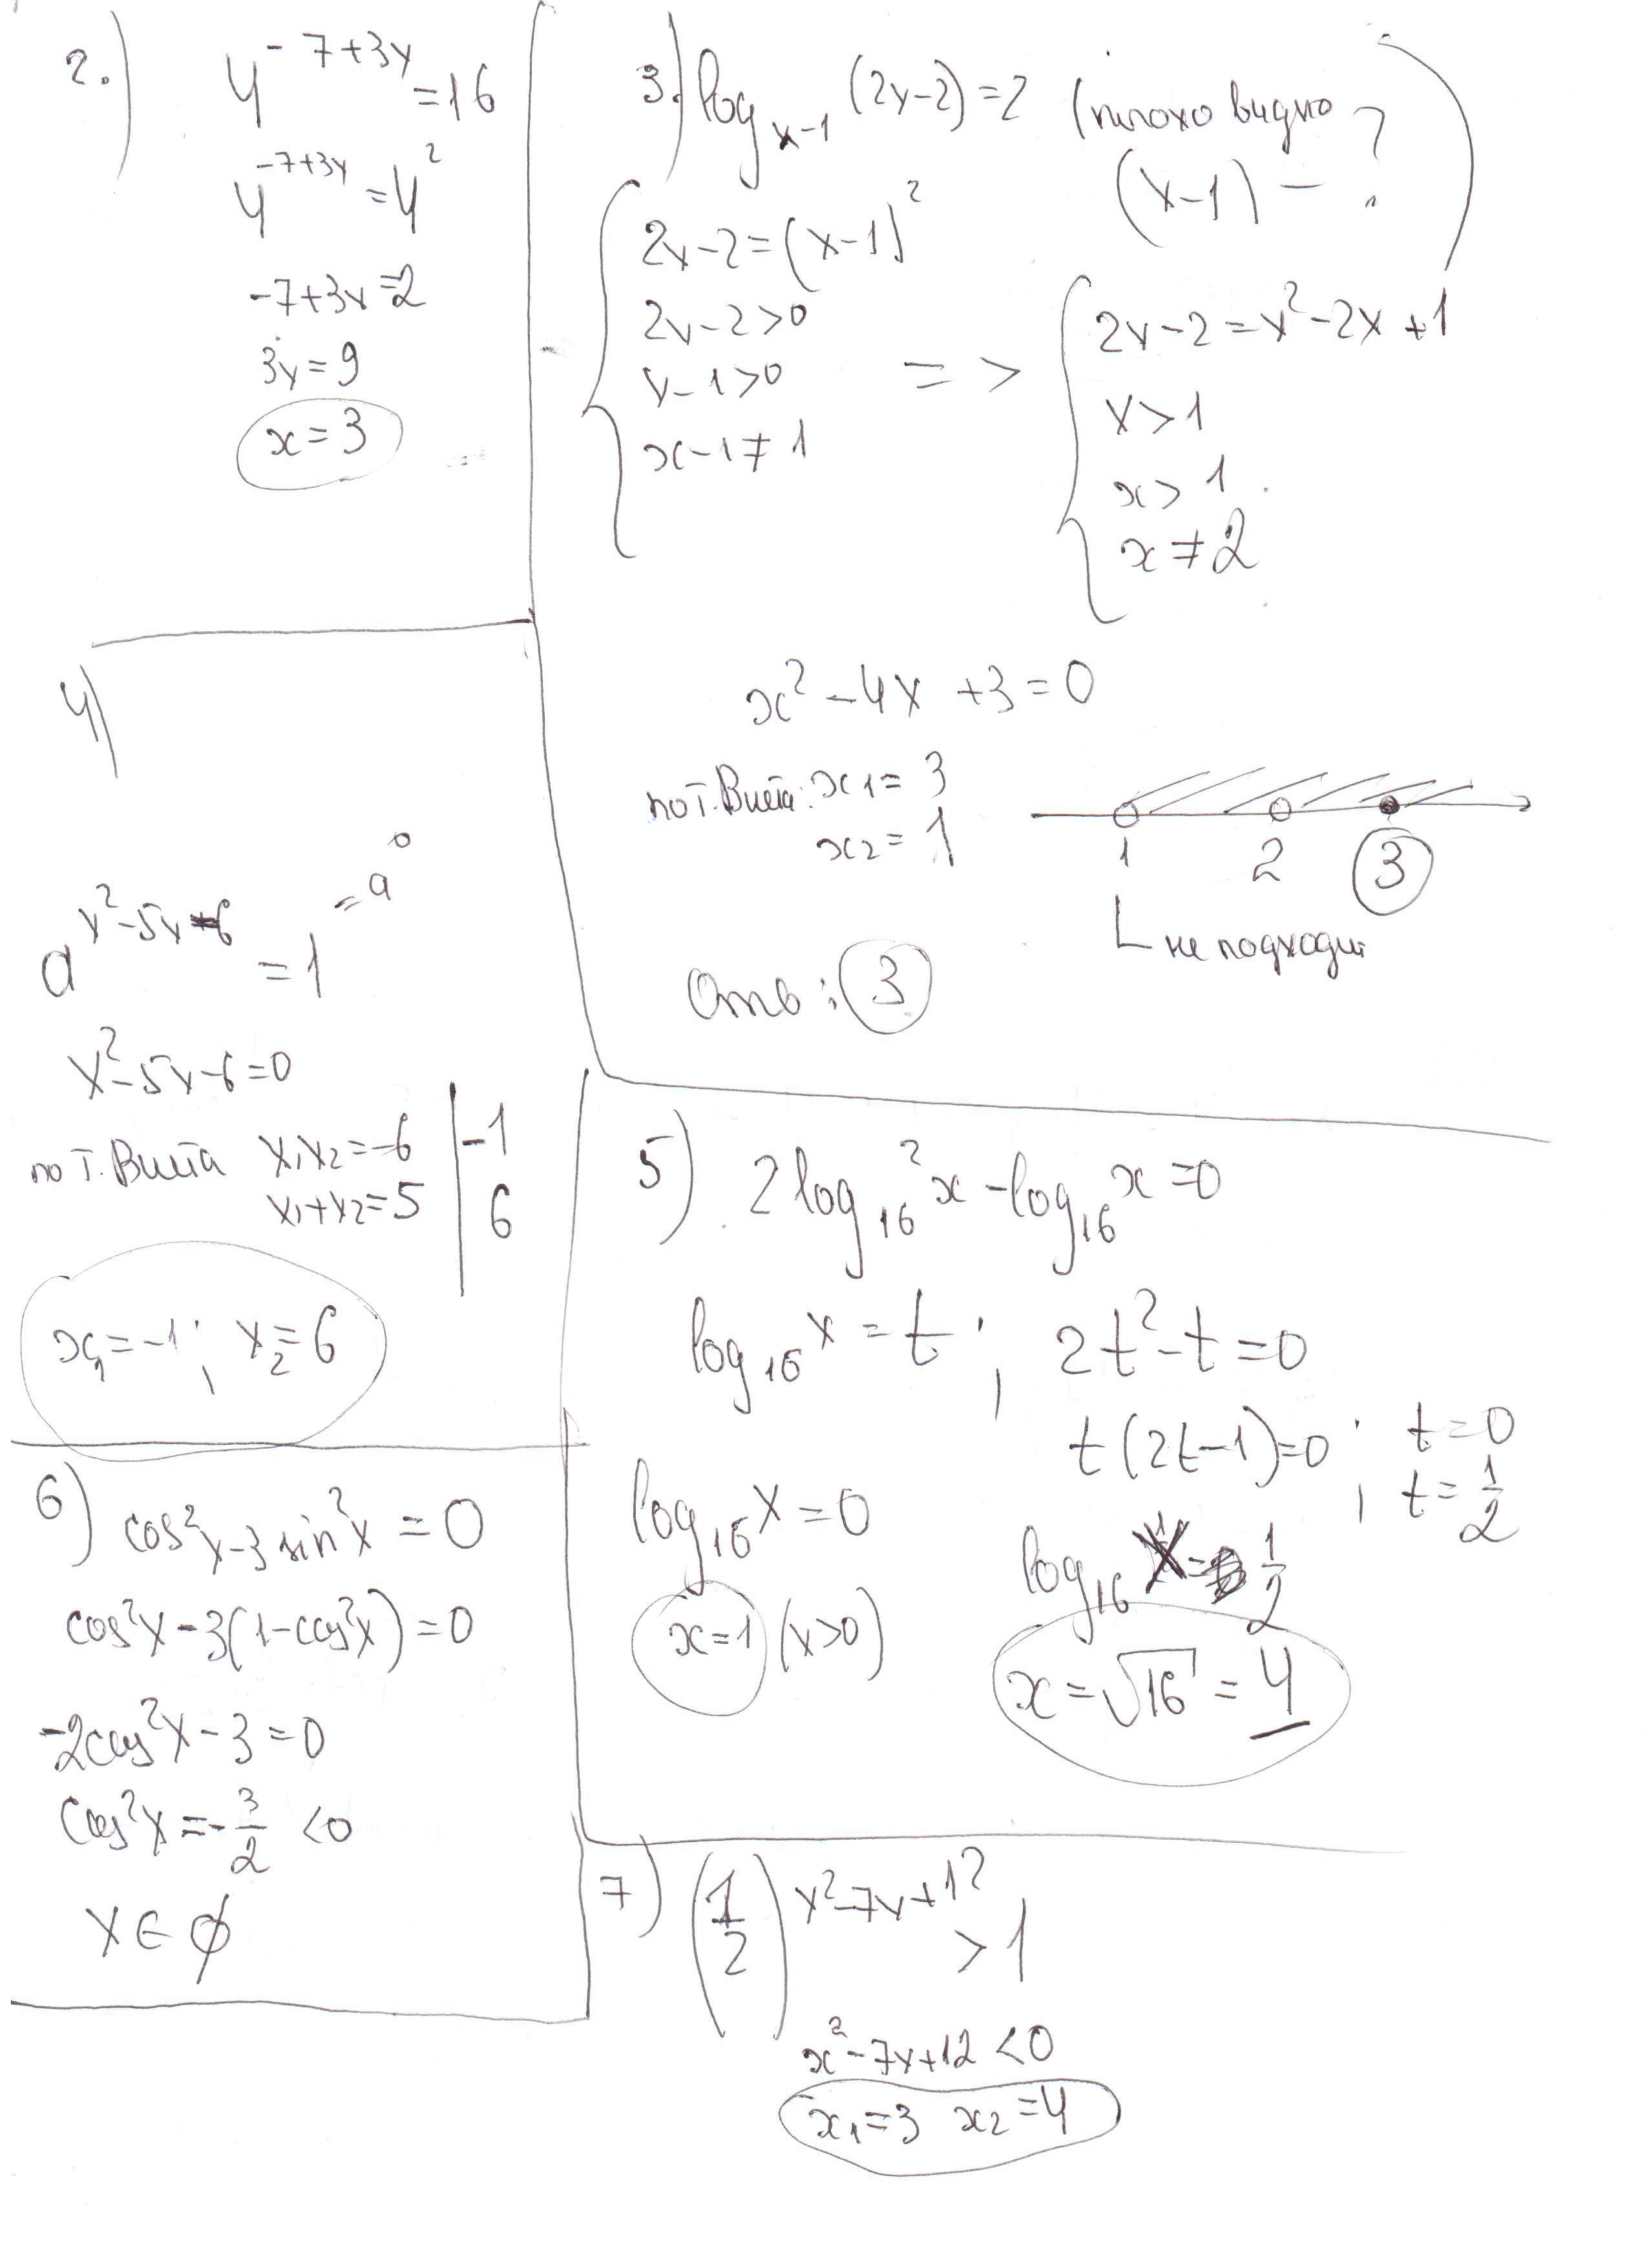 2.) 4^{-7+3x} = 16
4^{-7+3x} = 4^2
-7+3x=2
3x=9
x=3
3.) log_{x-1} (2x-2) = 2 (плохо видно
(x-1) - ?)
2x-2=(x-1)^2
2x-2>0
x-1>0
x-1≠1
=>
2x-2=x^2-2x+1
x>1
x>1
x≠2
x^2-4x+3=0
по т. Виета: x1=3
x2=1
1 2 3
не подходит
Отв: 3
4)
a^{x^2-5x-6} = 1 = a^0
x^2-5x-6=0
по т. Виета x1x2=-6 | -1
x1+x2=5 | 6
x1=-1; x2=6
5) 2log_{16}^2 x - log_{16} x = 0
log_{16} x = t; 2t^2-t=0
t(2t-1)=0; t=0
t=1/2
log_{16} x = 0
x=1 (x>0)
log_{16} x = 1/2
x=√16=4
6) cos^2x-3sin^2x=0
cos^2x-3(1-cos^2x)=0
-2cos^2x-3=0
cos^2x=-3/2 <0
x∈∅
7) (1/2)^{x^2-7x+12} > 1
x^2-7x+12<0
x1=3 x2=4